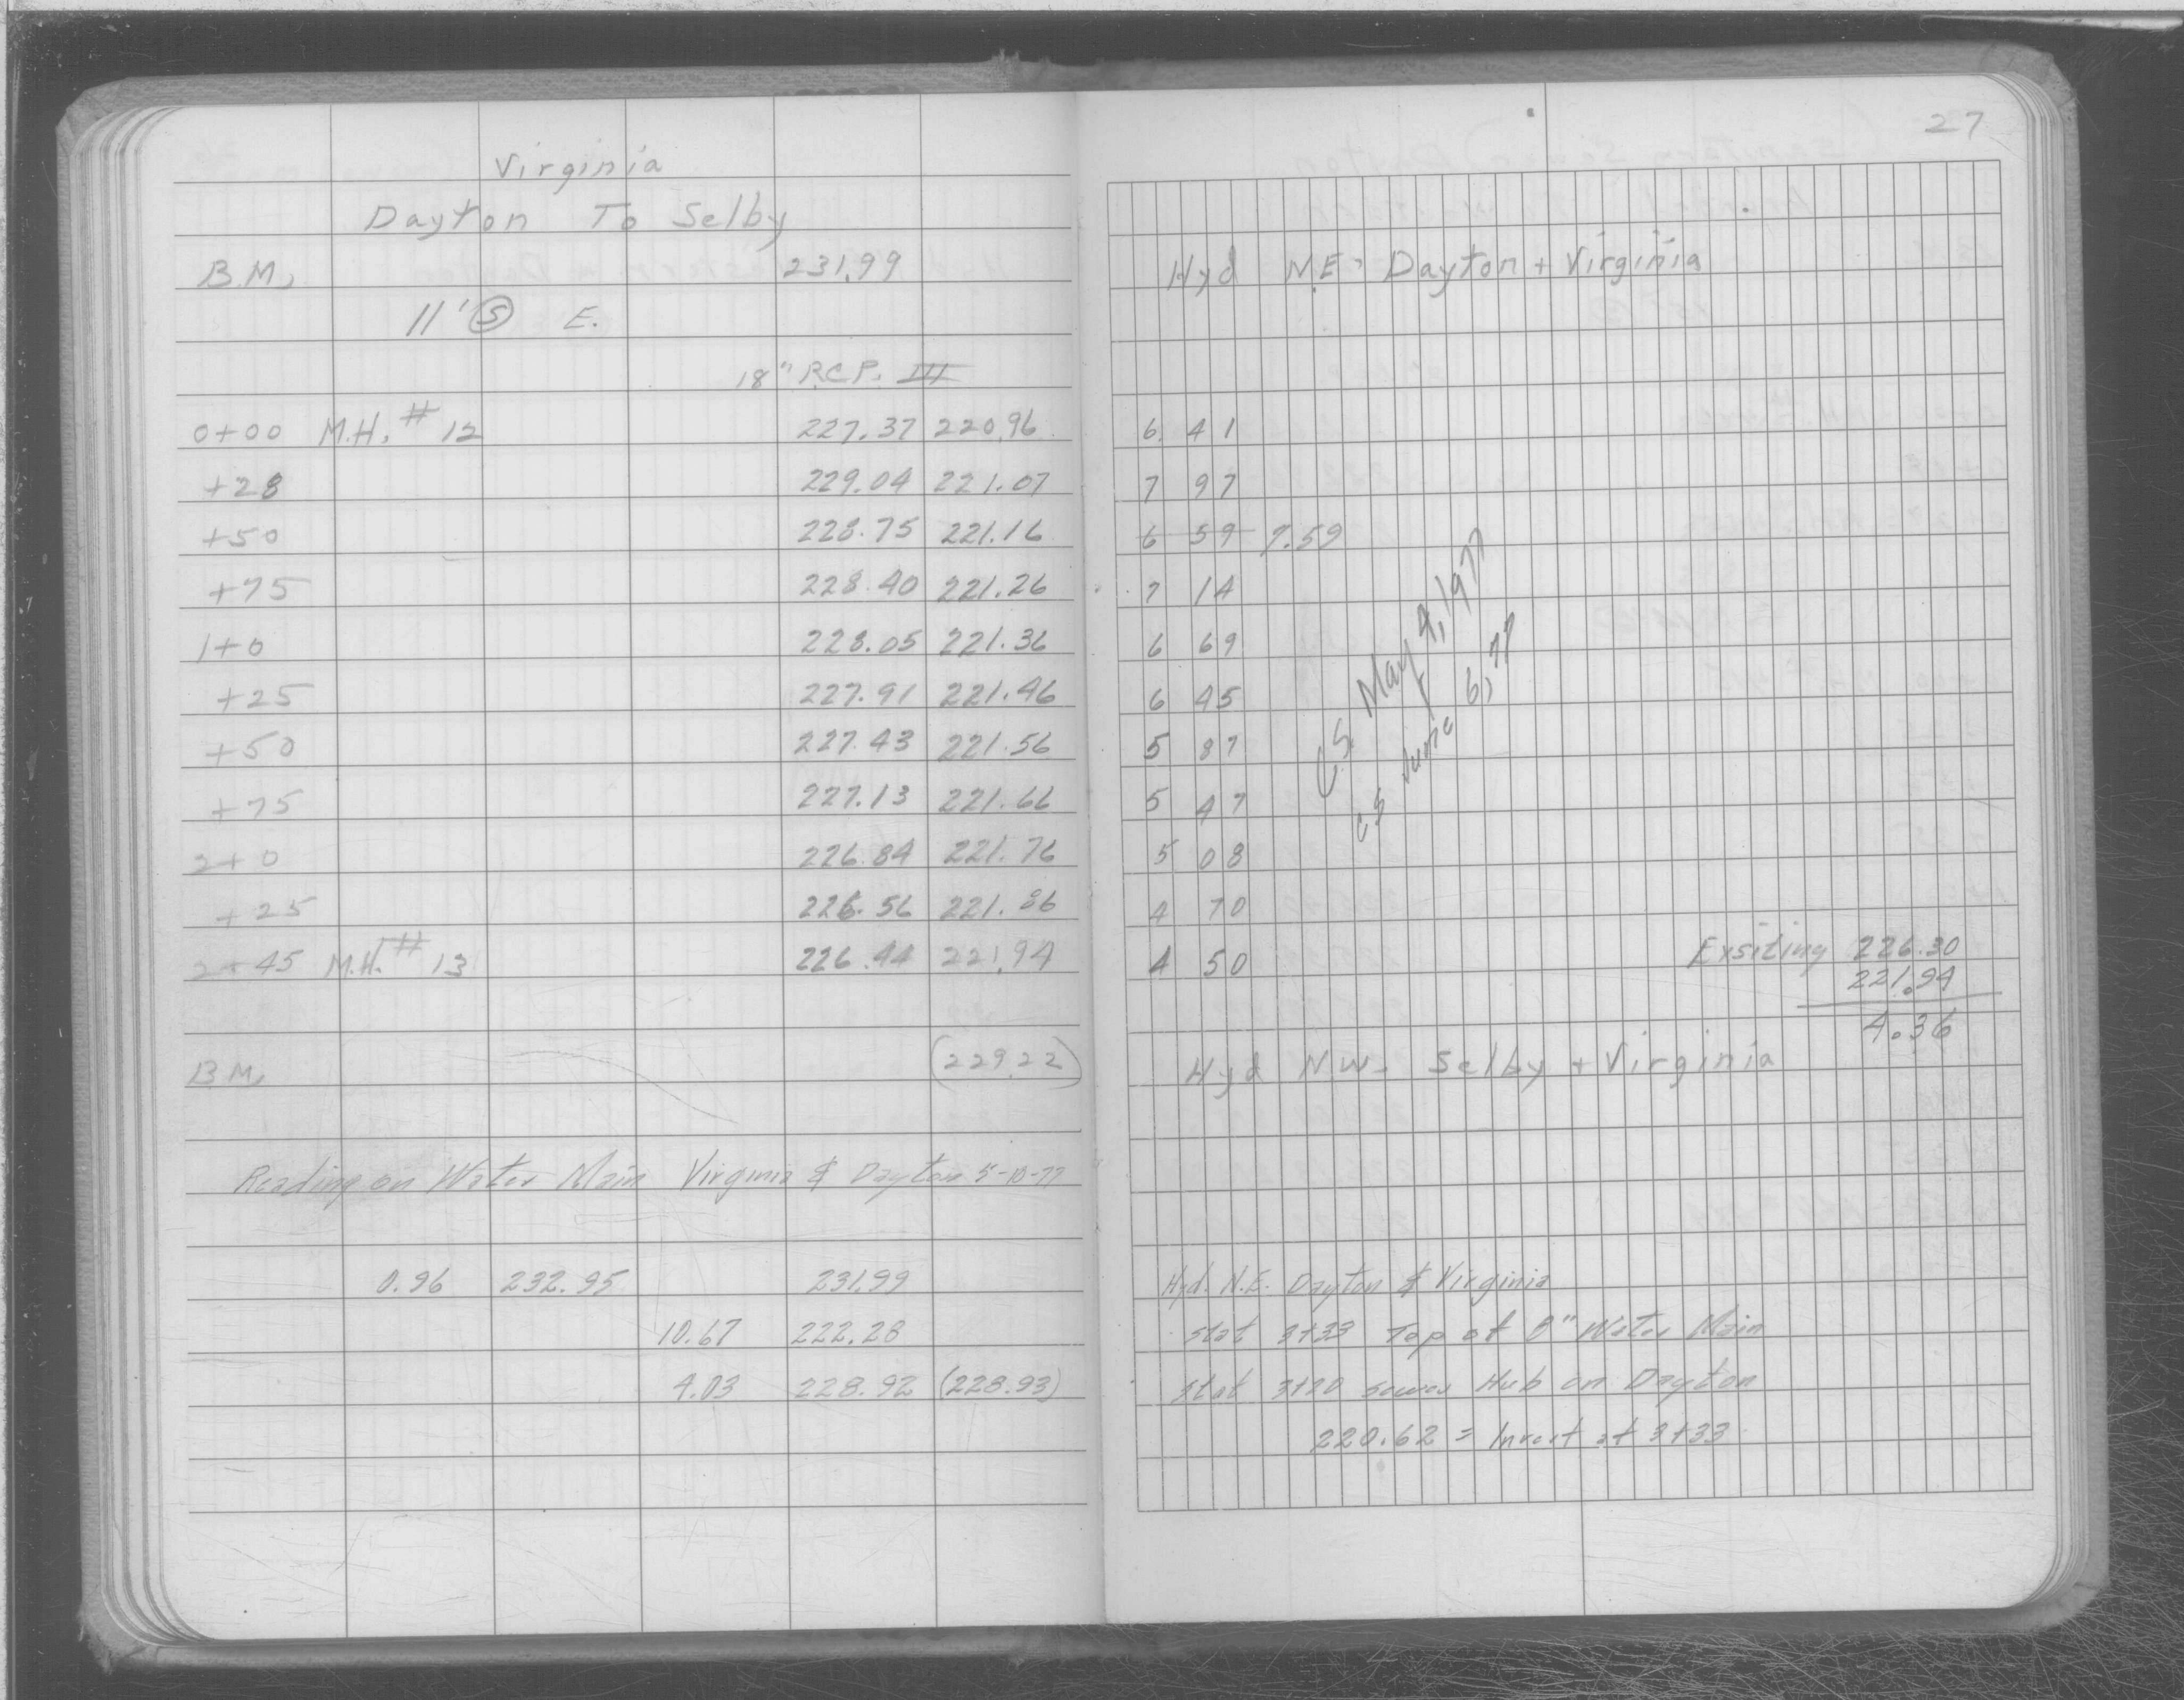 Virginia
Dayton To Selby
B.M. 231.99
11' Ⓢ E.
18" R.C.P. III
0+00 M.H. #12 227.37 220.96
+28 229.04 221.07
+50 228.75 221.16
+75 228.40 221.26
1+0 228.05 221.36
+25 227.91 221.46
+50 227.43 221.56
+75 227.13 221.66
2+0 226.84 221.76
+25 226.56 221.86
2+45 M.H. #13 226.44 221.94
B.M. (229.22)
Reading on Water Main Virginia & Dayton 5-10-77
0.96 232.95 231.99
10.67 222.28
4.03 228.92 (228.93)
27
Hyd N.E. Dayton + Virginia
6 41
7 97
6 59 7.59
7 14
6 69
6 45
5 87
5 47
5 08
4 70
4 50
C.S. May 4, 1977
CS June 6, 77
Exsiting 226.30
221.94
4.36
Hyd N.W. Selby + Virginia
Hyd. N.E. Dayton & Virginia
Stat 3+33 Top of 8" Water Main
Stat 3+20 Sewer Hub on Dayton
220.62 = Invert at 3+33